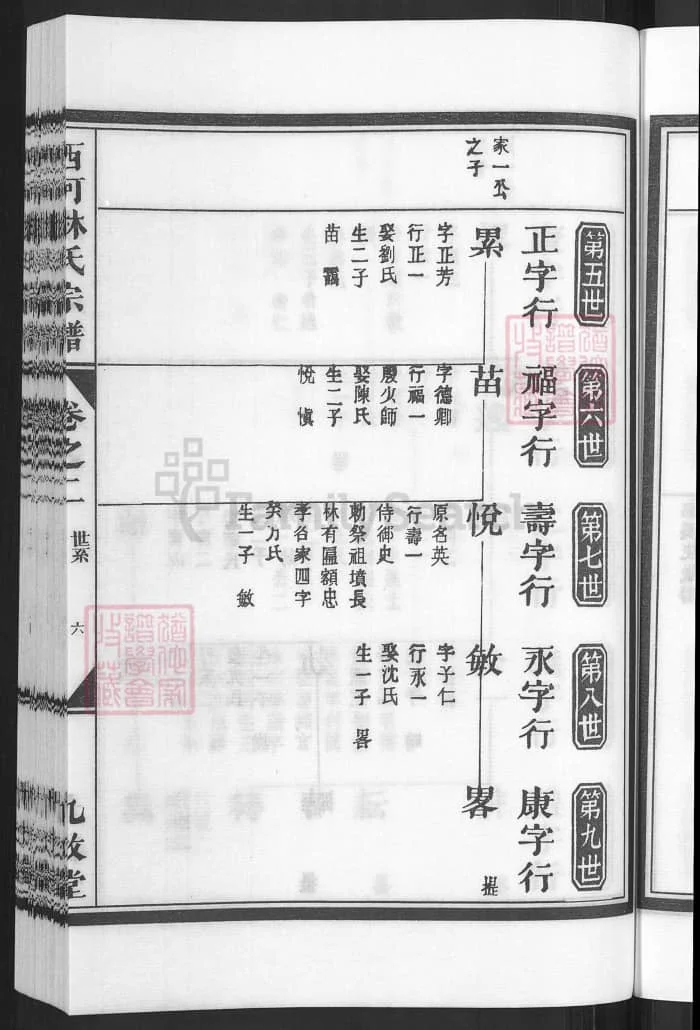 第五世
第六世
第七世
第八世
第九世
正字行
福字行
壽字行
永字行
康字行
家一公
之子
累
字正芳
行正一
娶劉氏
生二子
苗
苗
字德卿
行福一
殿少師
娶陳氏
生二子
悅 慎
悅
原名英
行壽一
侍御史
勅祭祖墳長
林有匾額忠
孝名家四字
娶方氏
生一子 敏
敏
字予仁
行永一
娶沈氏
生一子 畧
畧
西河林氏宗譜
卷之二
世系
六
九牧堂
FamilySearch